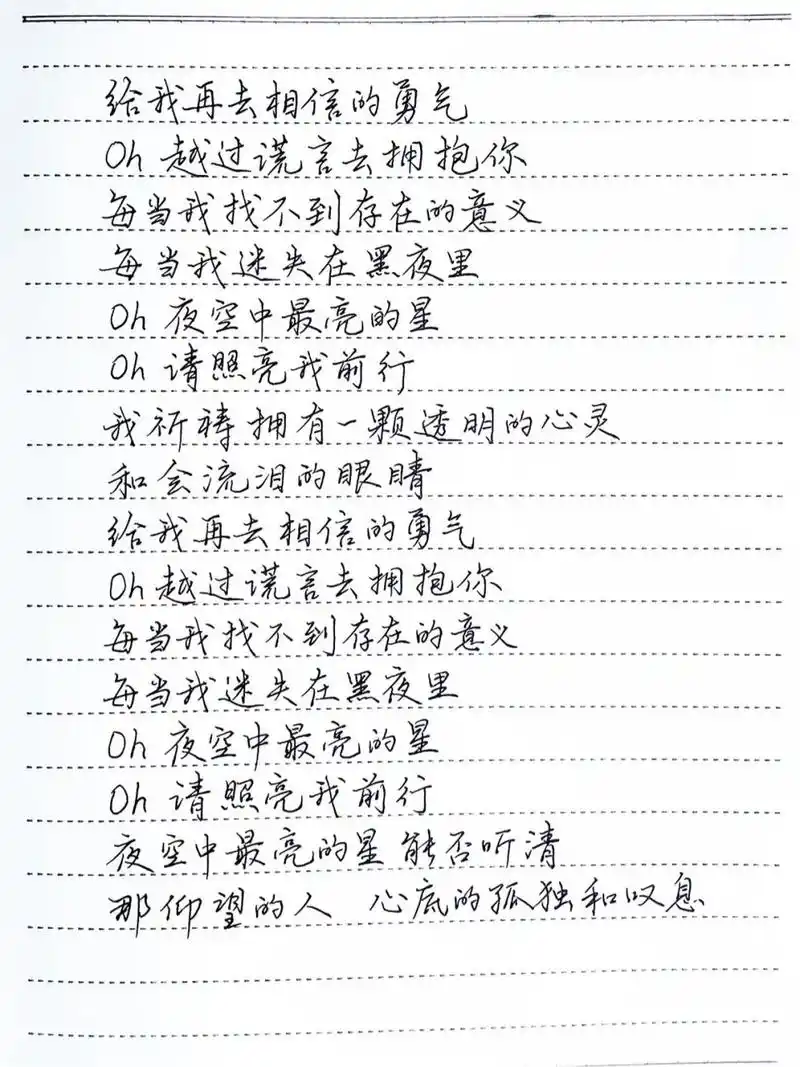 给我再去相信的勇气
Oh 越过谎言去拥抱你
每当我找不到存在的意义
每当我迷失在黑夜里
Oh 夜空中最亮的星
Oh 请照亮我前行
我祈祷拥有一颗透明的心灵
和会流泪的眼睛
给我再去相信的勇气
Oh 越过谎言去拥抱你
每当我找不到存在的意义
每当我迷失在黑夜里
Oh 夜空中最亮的星
Oh 请照亮我前行
夜空中最亮的星 能否听清
那仰望的人 心底的孤独和叹息